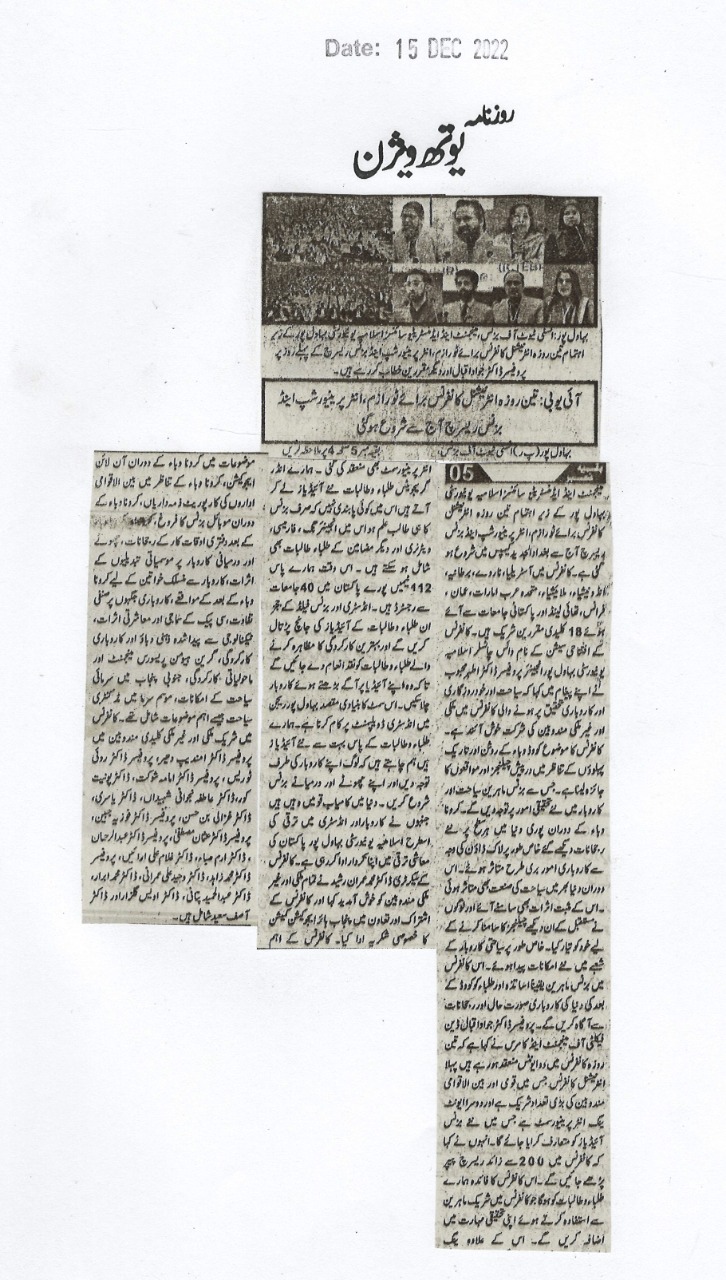 Date: 15 DEC 2022
روزنامہ
یوتھ ویژن
بہاول پور: انسٹی ٹیوٹ آف بزنس، مینجمنٹ اینڈ ایڈمنسٹریٹیو سائنسز اسلامیہ یونیورسٹی بہاول پور کے زیر
اہتمام تین روزہ انٹرنیشنل کانفرنس برائے ٹورازم، انٹرپرینیورشپ اینڈ بزنس ریسرچ کے پہلے روز پر
پروفیسر ڈاکٹر جواد اقبال اور دیگر مقررین خطاب کر رہے ہیں۔
آئی یو بی: تین روزہ انٹرنیشنل کانفرنس برائے ٹورازم، انٹرپرینیورشپ اینڈ
بزنس ریسرچ آج سے شروع ہوگئی
بہاول پور (پ ر) انسٹی ٹیوٹ آف بزنس، بقیہ نمبر 5 صفحہ 4 پر ملاحظہ کریں
بقیہ نمبر 05
مینجمنٹ اینڈ ایڈمنسٹریٹیو سائنسز اسلامیہ یونیورسٹی
بہاول پور کے زیر اہتمام تین روزہ انٹرنیشنل
کانفرنس برائے ٹورازم، انٹرپرینیورشپ اینڈ بزنس
ریسرچ آج سے بغداد الجدید کیمپس میں شروع ہو
گئی ہے۔ کانفرنس میں آسٹریلیا، ناروے، برطانیہ،
انڈونیشیا، ملائیشیا، متحدہ عرب امارات، عمان،
فرانس، تھائی لینڈ اور پاکستانی جامعات سے آئے
ہوئے 18 کلیدی مقررین شریک ہیں۔ کانفرنس
کے افتتاحی سیشن کے نام وائس چانسلر اسلامیہ
یونیورسٹی بہاول پور انجینئر پروفیسر ڈاکٹر اطہر محبوب
نے اپنے پیغام میں کہا کہ سیاحت اور خود روزگاری
اور کاروباری تحقیق پر ہونے والی کانفرنس میں ملکی
اور غیر ملکی مندوبین کی شرکت خوش آئند ہے۔
کانفرنس کا موضوع کووڈ وباء کے روشن اور تاریک
پہلوؤں کے تناظر میں درپیش چیلنجز اور مواقعوں کا
جائزہ لینا ہے، جس سے بزنس ماہرین سیاحت اور
کاروبار میں نے تحقیقی امور پر توجہ دیں گے۔ کرونا
وباء کے دوران پوری دنیا میں ہر سطح پر نئے
رجحانات دیکھے گئے خاص طور پر لاک ڈاؤن کی وجہ
سے کاروباری امور بری طرح متاثر ہوئے۔ اس
دوران دنیا بھر میں سیاحت کی صنعت بھی متاثر ہوئی
۔ اس کے مثبت اثرات بھی سامنے آئے اور لوگوں
نے مستقبل کے ان دیکھے چیلنجز کا سامنا کرنے کے
لیے خود کو تیار کیا۔ خاص طور پر سیاحتی کاروبار کے
شعبے میں نئے امکانات پیدا ہوئے۔ اس کانفرنس
میں بزنس ماہرین یقیناً اساتذہ اور طلباء کو کووڈ کے
بعد کی دنیا کی کاروباری صورت حال اور رجحانات
سے آگاہ کریں گے۔ پروفیسر ڈاکٹر جواد اقبال ڈین
فیکلٹی آف مینجمنٹ اینڈ کامرس نے کہا ہے کہ تین
روزہ کانفرنس میں دو ایونٹس منعقد ہو رہے ہیں پہلا
انٹرنیشنل کانفرنس جس میں قومی اور بین الاقوامی
مندوبین کی بڑی تعداد شریک ہے اور دوسرا ایونٹ
ینگ انٹرپرینیورسمٹ ہے جس میں نئے بزنس
آئیڈیاز کو متعارف کرایا جائے گا۔ انہوں نے کہا
کہ کانفرنس میں 200 سے زائد ریسرچ پیپر
پڑھے جائیں گے۔ اس کانفرنس کا فائدہ ہمارے
طلباء و طالبات کو ہوگا جو کانفرنس میں شریک ماہرین
سے استفادہ کرتے ہوئے اپنی تحقیقی مہارت میں
اضافہ کریں گے۔ اس کے علاوہ ینگ
انٹرپرینیورسٹ بھی منعقد کی گئی۔ ہمارے انڈر
گریجویٹس طلباء و طالبات نئے آئیڈیاز لے کر
آتے ہیں اس میں کوئی پابندی نہیں کہ صرف بزنس
کا ہی طالب علم ہو اس میں انجینئرنگ، فارمیسی،
ویٹرنری اور دیگر مضامین کے طلباء طالبات بھی
شامل ہو سکتے ہیں۔ اس وقت ہمارے پاس
112 ٹیمیں پورے پاکستان میں 40 جامعات
سے رجسٹرڈ ہیں۔ انڈسٹری اور بزنس فیلڈ کے ججز
ان طلباء و طالبات کے آئیڈیاز کی جانچ پڑتال
کریں گے اور بہترین کارکردگی کا مظاہرہ کرنے
والے طلباء و طالبات کو نقد انعام دے جائیں گے
تاکہ وہ اپنے آئیڈیا پر آگے بڑھتے ہوئے کاروبار
چلا سکیں۔ اس سمٹ کا بنیادی مقصد بہاول پور ریجن
میں انڈسٹری ڈویلپمنٹ پر کام کرنا ہے۔ ہمارے
طلباء و طالبات کے پاس بہت سے نئے آئیڈیاز
ہیں ہم چاہتے ہیں کہ لوگ اپنے کاروبار کی طرف
توجہ دیں اور اپنے چھوٹے اور درمیانے بزنس
شروع کریں۔ دنیا میں کامیاب قومیں وہیں ہیں
جنہوں نے کاروبار اور انڈسٹری میں ترقی کی
اسطرح اسلامیہ یونیورسٹی بہاول پور پاکستان کی
معاشی ترقی میں اپنا کردار ادا کر رہی ہے۔ کانفرنس
کے سیکرٹری ڈاکٹر محمد عمران رشید نے تمام ملکی اور غیر
ملکی مندوبین کو خوش آمدید کہا اور کانفرنس کے
اشتراک اور تعاون میں پنجاب ہائر ایجوکیشن کمیشن
کا خصوصی شکریہ ادا کیا۔ کانفرنس کے اہم
موضوعات میں کرونا وباء کے دوران آن لائن
ایجوکیشن، کرونا وباء کے تناظر میں بین الاقوامی
اداروں کی کارپوریٹ ذمہ داریاں، کرونا وباء کے
دوران موبائل بزنس کا فروغ،
کے بعد دفتری اوقات کار کے رجحانات، چھوٹے
اور درمیانی کاروبار پر موسمیاتی تبدیلیوں کے
اثرات، کاروبار سے منسلک خواتین کے لیے کرونا
وباء کے بعد کے مواقعے، کاروباری جگہوں پر صنفی
تفاوت، سی پیک کے سماجی اور معاشرتی اثرات،
ٹیکنالوجی سے پیدا شدہ ذہنی دباؤ اور کاروباری
کارکردگی، گرین ہیومن ریسورس مینجمنٹ اور
ماحولیاتی کارکردگی، جنوبی پنجاب میں سرمائی
سیاحت کے امکانات، موسم سرما میں ڈسٹنی
سیاحت جیسے اہم موضوعات شامل تھے۔ کانفرنس
میں شریک ملکی اور غیر ملکی کلیدی مندوبین میں
پروفیسر ڈاکٹر امندیپ دھیر، پروفیسر ڈاکٹر روئی
ٹوریس، پروفیسر ڈاکٹر امامہ شوکت، ڈاکٹر پونیت
کور، ڈاکٹر عاطفہ نجوانی شہیداں، ڈاکٹر یاسری،
ڈاکٹر غزالی بن حسن، پروفیسر ڈاکٹر فوزیہ جبین،
پروفیسر ڈاکٹر عثمان مصطفیٰ، پروفیسر ڈاکٹر عبدالرحمان
، ڈاکٹر ارم ضیاء، ڈاکٹر غلام علی ارائیں، پروفیسر
ڈاکٹر محمد زاہد، ڈاکٹر وحید علی عمرانی، ڈاکٹر محمد ابرار،
ڈاکٹر عبدالحمید پتافی، ڈاکٹر اویس گلزار اور ڈاکٹر
آصف سعید شامل ہیں۔